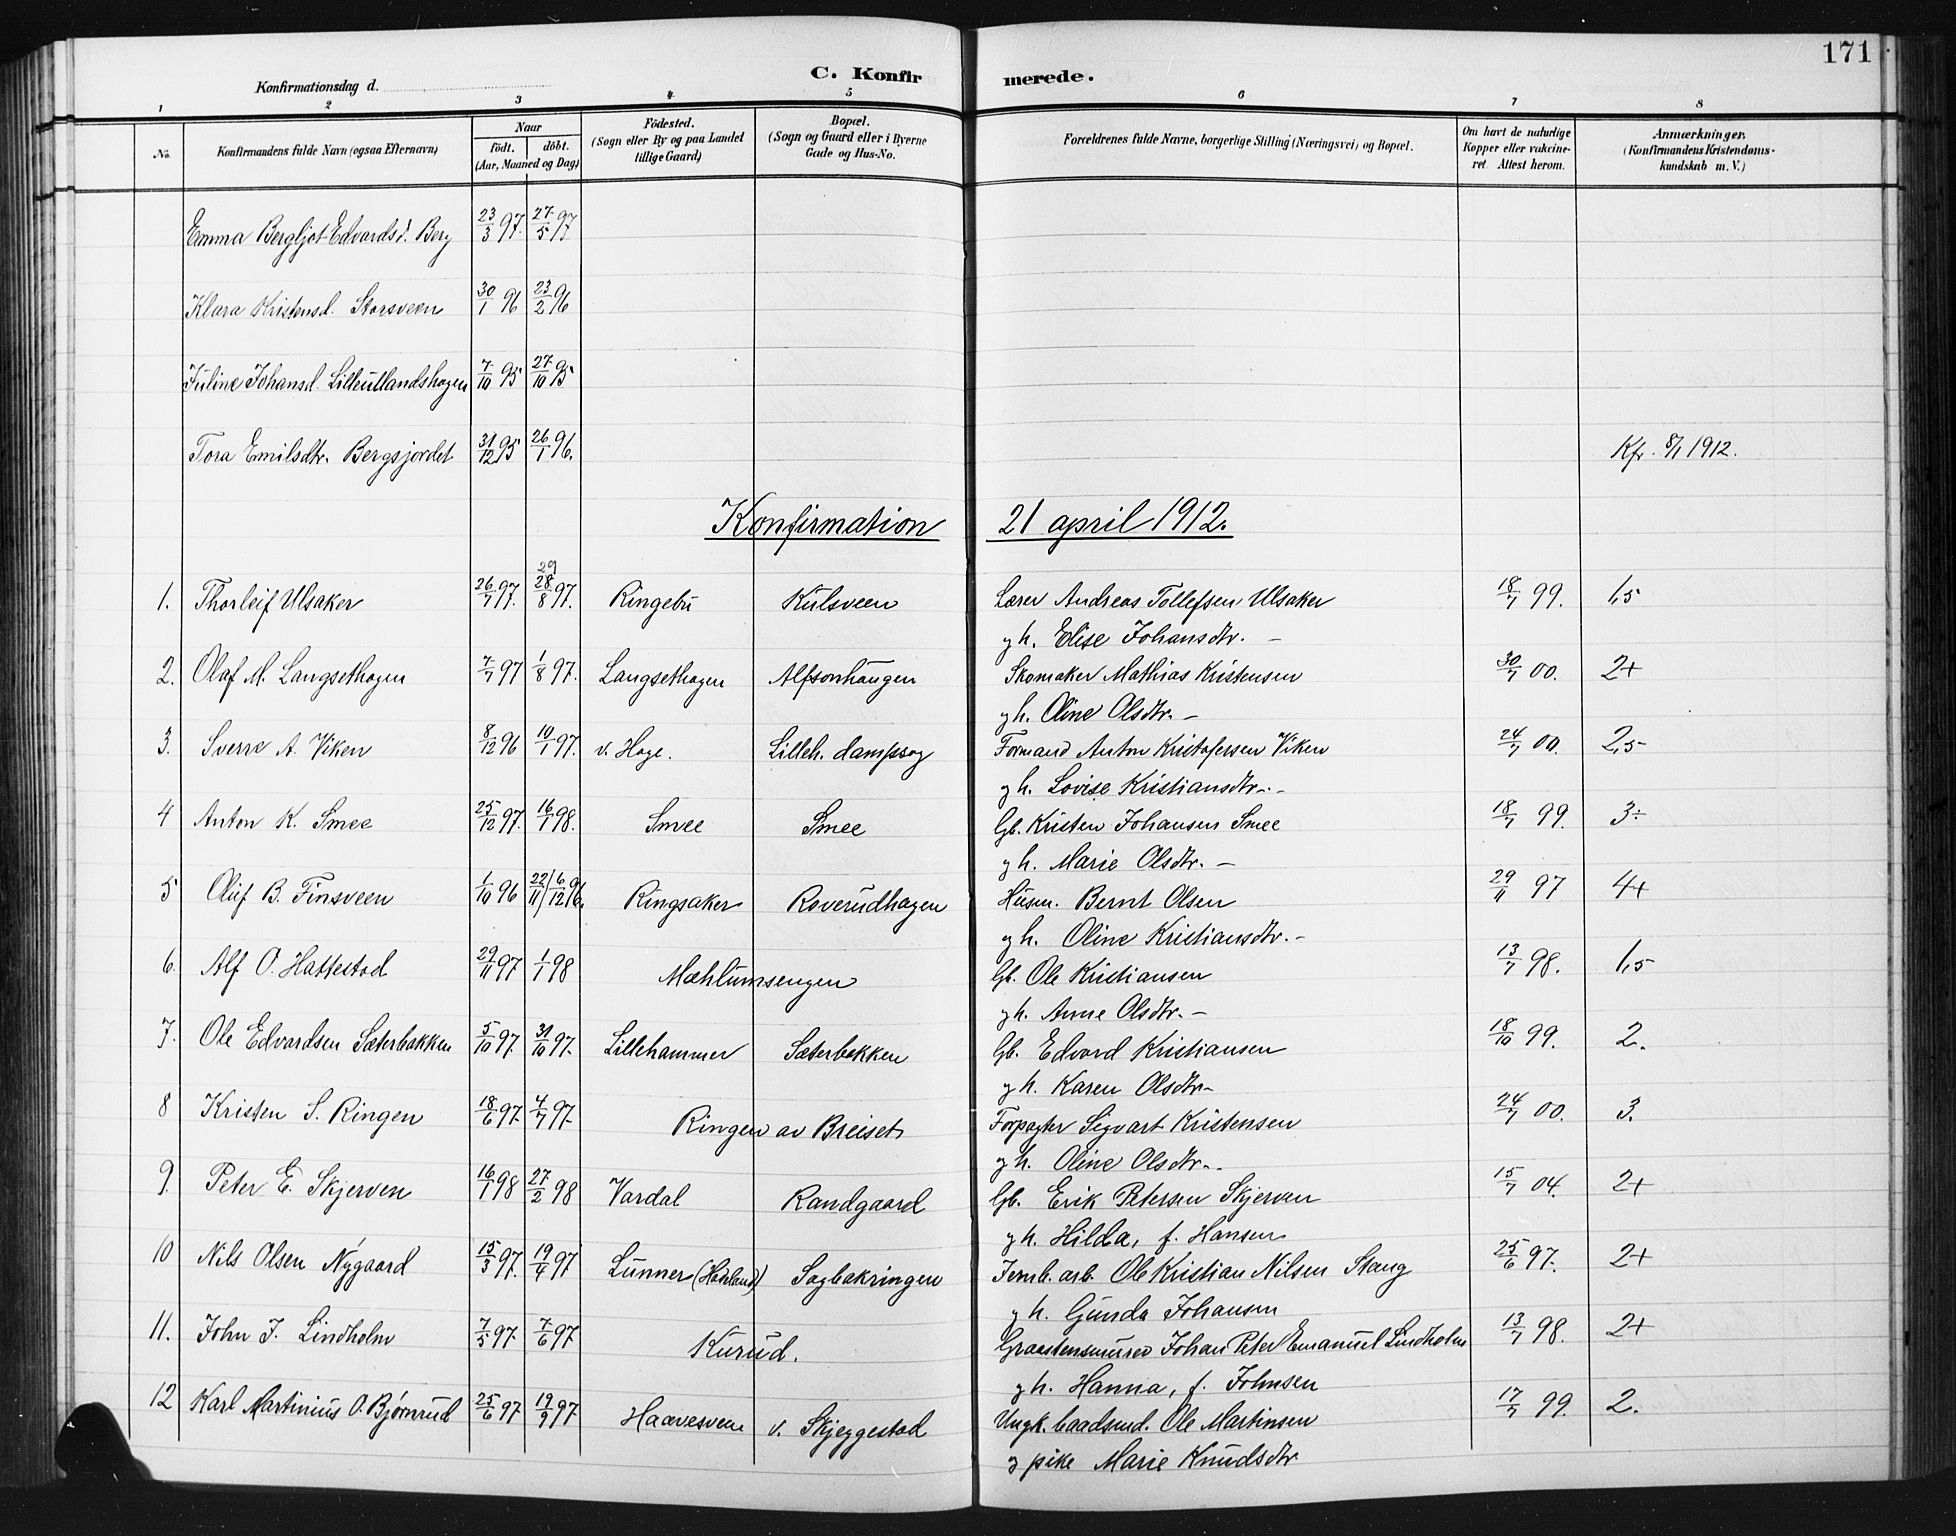 171
C. Konfir merede.
Konfirmationsdag d.
1 2 3 4 5 6 7 8
No.
Konfirmandens fulde Navn (ogsaa Efternavn)
Naar
født. døbt.
(Aar, Maaned og Dag)
Fødested.
(Sogn eller By og paa Landet
tillige Gaard)
Bopæl.
(Sogn og Gaard eller i Byerne
Gade og Hus-No.
Forældrenes fulde Navne, borgerlige Stilling (Næringsvei) og Bopæl.
Om havt de naturlige
Kopper eller vakcine-
ret Attest herom.
Anmærkninger.
(Konfirmandens Kristendoms-
kundskab m. V.)
Emma Bergljot Edvardsd. Berg 23/3 97. 27/5 97
Klara Kristensd. Storsveen 30/1 96 23/2 96
Juline Johansd. Lilleutlandshagen 7/10 95 27/10 95
Tora Emilsdtr. Bergsjordet 31/12 95 26/1 96. Kfr. 8/1 1912.
Konfirmation 21 april 1912.
29
1. Thorleif Ulsaker 26/7 97. 28/8 97. Ringebu Kulsveen Lærer Andreas Tollefsen Ulsaker 18/7 99. 1,5
g h. Elise Johansdtr. –
2. Olaf M. Langsethagen 7/7 97 1/8 97. Langsethagen Alfsonhaugen Skomaker Mathias Kristensen 30/7 00. 2+
g h. Oline Olsdtr. –
3. Sverre A. Viken 8/12 96 10/1 97. v. Hage. Lilleh. dampsag Formand Anton Kristofersen Viken 24/7 00. 2,5
g h. Lovise Kristiansdtr. –
4 Anton K. Smee 25/12 97. 16/1 98. Smee Smee Gb. Kristen Johansen Smee 18/7 99. 3÷
g h. Marie Olsdtr. –
5 Oluf B. Finsveen 1/10 96 22/11 / 6/12 96. Ringsaker Roverudhagen Husm. Bernt Olsen 29/11 97 4+
g h. Oline Kristiansdtr. –
6. Alf O. Hattestad 29/11 97 1/1 98 Mæhlumsengen Gb. Ole Kristiansen 13/7 98. 1,5
g h. Anne Olsdtr. –
7. Ole Edvardsen Sæterbakken 5/10 97. 31/10 97. Lillehammer Sæterbakken Gb. Edvard Kristiansen 18/10 99. 2.
g h. Karen Olsdtr –
8 Kristen S. Ringen 18/6 97. 4/7 97. Ringen av Breiset Forpagter Sigvart Kristensen 24/7 00. 3.
g h. Oline Olsdtr. –
9. Peter E. Skjerven 16/1 98 27/2 98 Vardal Randgaard Gb. Erik Petersen Skjerven 15/7 04. 2+
g h. Hilda, f. Hansen
10 Nils Olsen Nygaard 15/3 97. 19/4 97 Lunner (Hadeland) Sagbakringen Jernb. arb. Ole Kristian Nilsen Stang 25/6 97. 2+
g h. Gunda Johansen
11. John J. Lindholm 7/5 97. 7/6 97 Kurud. Graastensmurer Johan Peter Emanuel Lindholm 13/7 98. 2+
g h. Hanna, f. Johnsen
12 Karl Martinius O. Bjørnrud 25/6 97 19/9 97. Haavesveen v. Skjeggestad Ungk. baadsmd. Ole Martinsen 17/7 99. 2.
g pike Marie Knudsdtr.